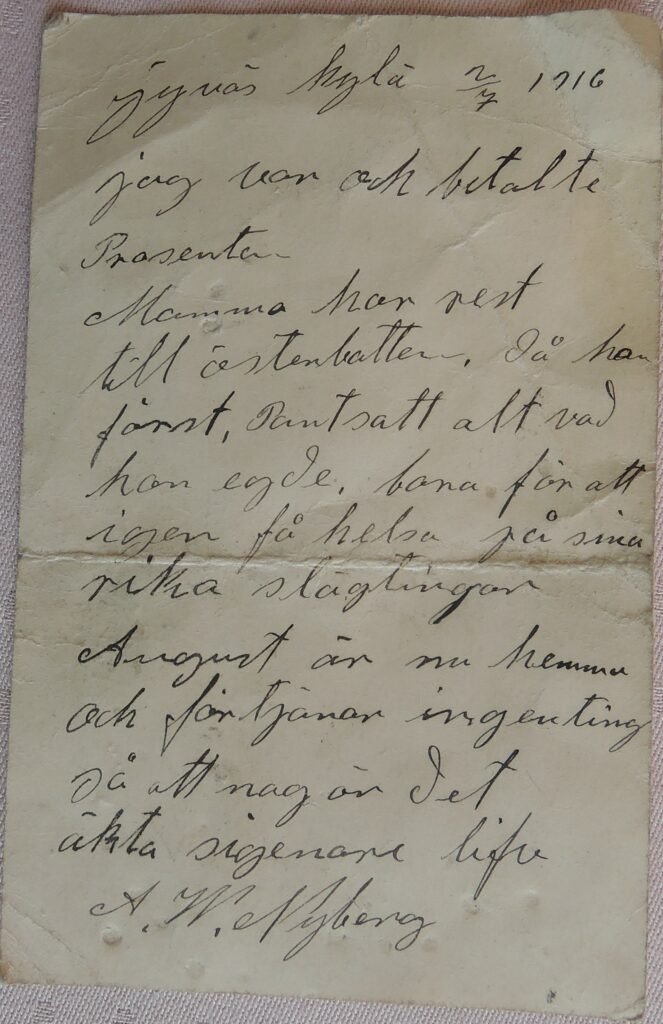 jyväs kylä 2/7 1916
jag var och betalte
Prosenten
Mamma har rest
till österbotten. Då han
först, Pantsatt alt vad
han egde. bara för att
igen få helsa på sina
rika slägtingar
August är nu hemma
och förtjänar ingenting
så att nog är det
äkta sigenare lifve
A. W. Nyberg